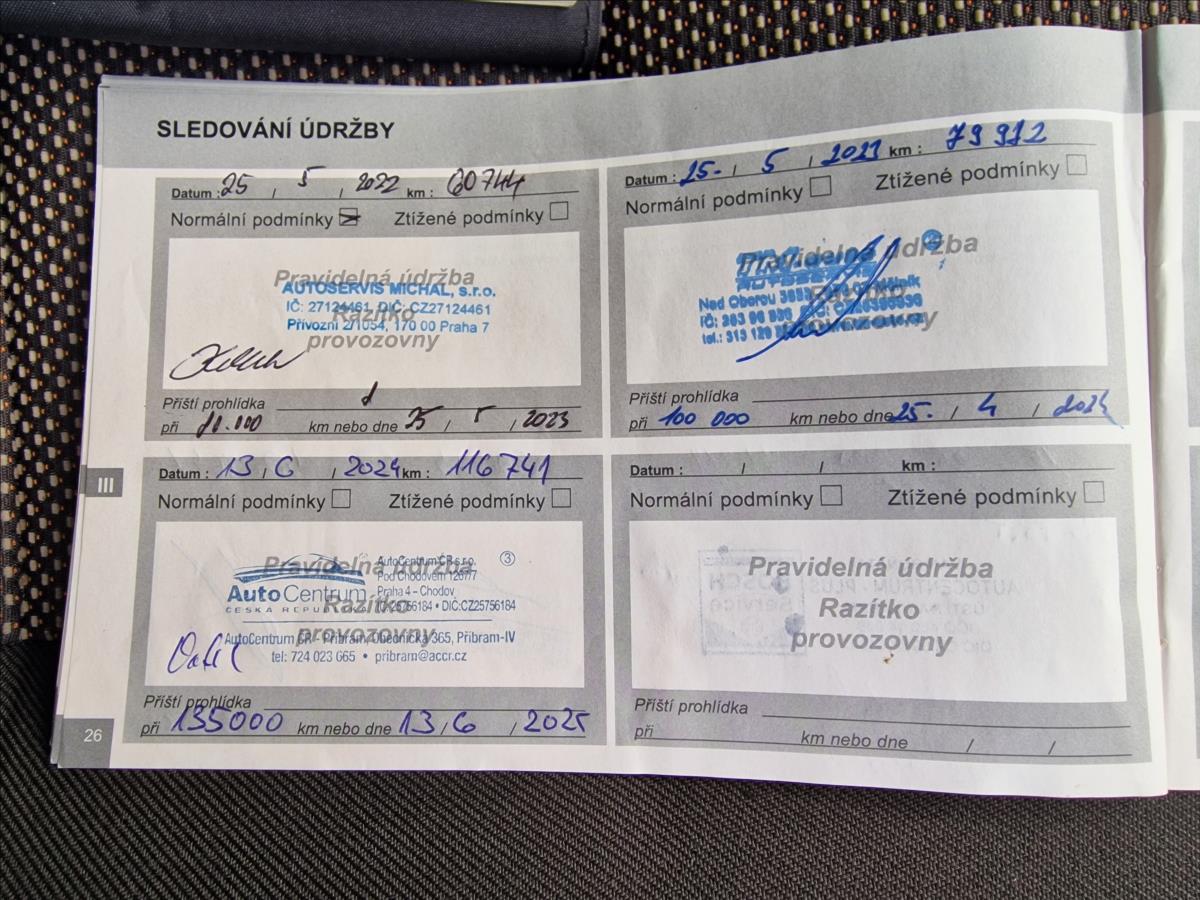 SLEDOVÁNÍ ÚDRŽBY
Datum : 25 / 5 / 2022 km : 60744
Normální podmínky Ztížené podmínky
Pravidelná údržba
Razítko
provozovny
AUTOSERVIS MICHAL, s.r.o.
IČ: 27124461, DIČ: CZ27124461
Přívozní 2/1054, 170 00 Praha 7
Příští prohlídka
při km nebo dne 25 / 5 / 2023
Datum : 25. / 5 / 2023 km : 79 912
Normální podmínky Ztížené podmínky
Pravidelná údržba
Razítko
provozovny
Nad Oborou
IČ:
tel.: 313 129
Příští prohlídka
při 100 000 km nebo dne 25. / 4 / 2024
III
Datum : 13 / 6 / 2024 km : 116741
Normální podmínky Ztížené podmínky
Pravidelná údržba
Razítko
provozovny
AutoCentrum
ČESKÁ REPUBLIKA
AutoCentrum ČR s.r.o.
Pod Chodovem 126/77
Praha 4 – Chodov
IČ:25756184 • DIČ:CZ25756184
3
AutoCentrum ČR - Příbram, Obecnická 365, Příbram-IV
tel: 724 023 665 • pribram@accr.cz
Příští prohlídka
při 135000 km nebo dne 13 / 6 / 2025
Datum : / / km :
Normální podmínky Ztížené podmínky
Pravidelná údržba
Razítko
provozovny
Příští prohlídka
při km nebo dne / /
26